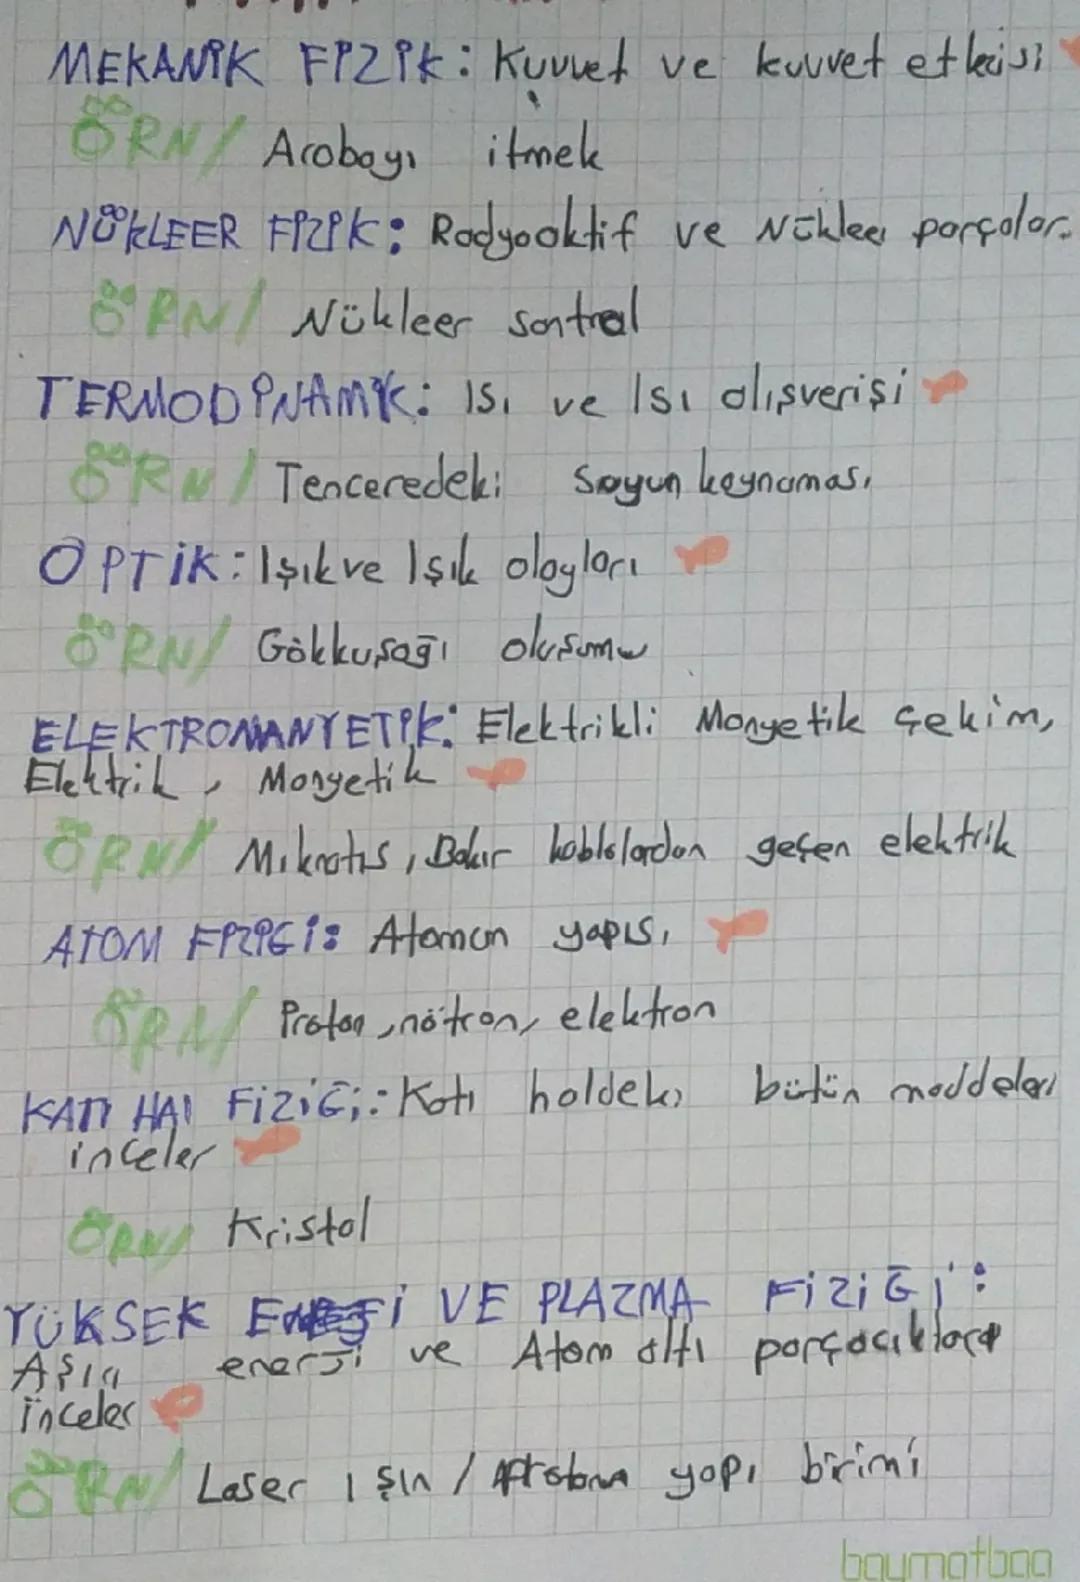 MEKANİK FİZİK: Kuvvet ve kuvvet etkisi
ÖRN/ Arabayı itmek
NÜKLEER FİZİK: Radyoaktif ve Nükleer parçalar.
ÖRN/ Nükleer santral
TERMODİNAMİK: Isı ve Isı alışverişi
ÖRN/ Tenceredeki Suyun kaynaması
OPTİK: Işık ve Işık olayları
ÖRN/ Gökkuşağı oluşumu
ELEKTROMANYETİK: Elektrikli Manyetik Çekim,
Elektrik, Manyetik
ÖRN/ Mıknatıs, Bakır kablolardan geçen elektrik
ATOM FİZİĞİ: Atomun yapısı
ÖRN/ Proton, nötron, elektron
KATI HAL FİZİĞİ: Katı haldeki bütün maddeleri
inceler
ÖRN/ Kristal
YÜKSEK ENERJİ VE PLAZMA FİZİĞİ:
Aşırı enerji ve Atom altı parçacıkları
inceler
ÖRN/ Laser ışın / yapı birimi
baymatbaa